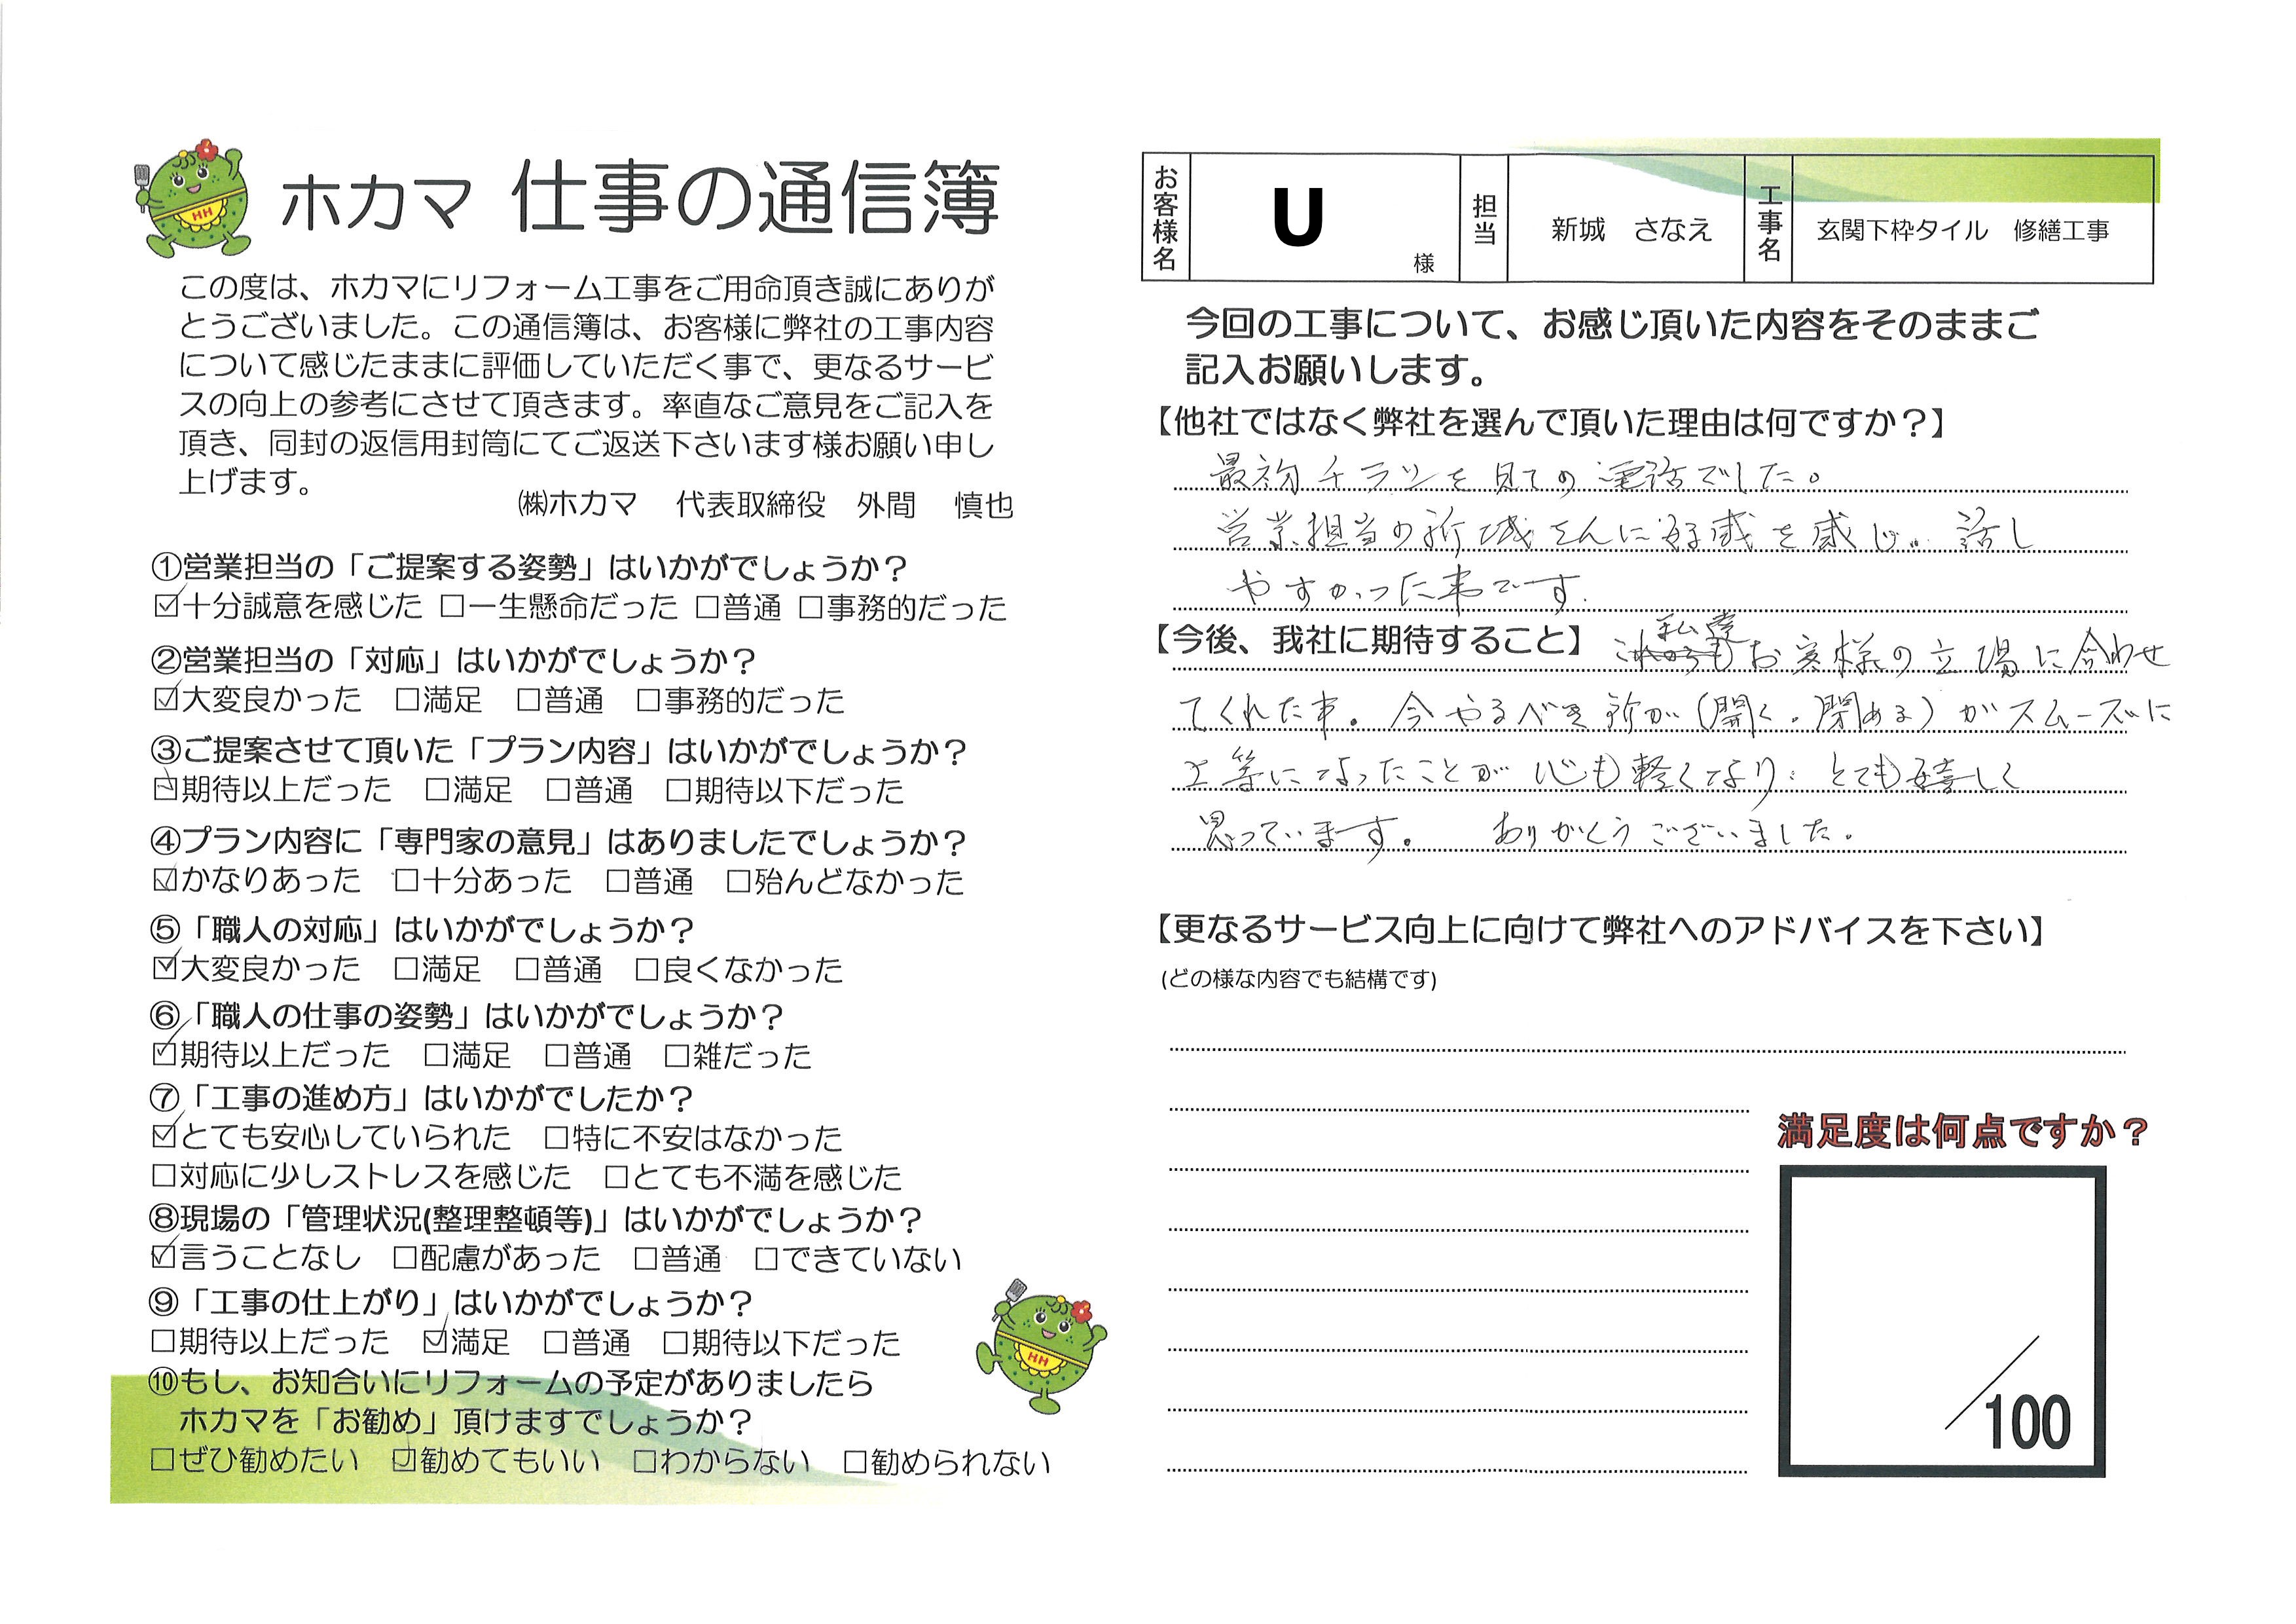 ホカマ 仕事の通信簿
この度は、ホカマにリフォーム工事をご用命頂き誠にありが
とうございました。この通信簿は、お客様に弊社の工事内容
について感じたままに評価していただく事で、更なるサービ
スの向上の参考にさせて頂きます。率直なご意見をご記入を
頂き、同封の返信用封筒にてご返送下さいます様お願い申し
上げます。
㈱ホカマ 代表取締役 外間 慎也
①営業担当の「ご提案する姿勢」はいかがでしょうか？
☑十分誠意を感じた □一生懸命だった □普通 □事務的だった
②営業担当の「対応」はいかがでしょうか？
☑大変良かった □満足 □普通 □事務的だった
③ご提案させて頂いた「プラン内容」はいかがでしょうか？
☑期待以上だった □満足 □普通 □期待以下だった
④プラン内容に「専門家の意見」はありましたでしょうか？
☑かなりあった □十分あった □普通 □殆んどなかった
⑤「職人の対応」はいかがでしょうか？
☑大変良かった □満足 □普通 □良くなかった
⑥「職人の仕事の姿勢」はいかがでしょうか？
☑期待以上だった □満足 □普通 □雑だった
⑦「工事の進め方」はいかがでしたか？
☑とても安心していられた □特に不安はなかった
□対応に少しストレスを感じた □とても不満を感じた
⑧現場の「管理状況(整理整頓等)」はいかがでしょうか？
☑言うことなし □配慮があった □普通 □できていない
⑨「工事の仕上がり」はいかがでしょうか？
□期待以上だった ☑満足 □普通 □期待以下だった
⑩もし、お知合いにリフォームの予定がありましたら
ホカマを「お勧め」頂けますでしょうか？
□ぜひ勧めたい ☑勧めてもいい □わからない □勧められない
HH
HH
お客様名 U 様 担当 新城 さなえ 工事名 玄関下枠タイル 修繕工事
今回の工事について、お感じ頂いた内容をそのままご
記入お願いします。
【他社ではなく弊社を選んで頂いた理由は何ですか？】
最初チラシを見ての電話でした。
営業担当の新城さんに好感を感じ、話し
やすかった事です.
【今後、我社に期待すること】 私達お客様の立場に合わせ
てくれた事。今やるべき所が(開く。閉める)がスムーズに
上等になったことが心も軽くなり、とても嬉しく
思っています。 ありがとうございました。
【更なるサービス向上に向けて弊社へのアドバイスを下さい】
(どの様な内容でも結構です)
満足度は何点ですか？
/100